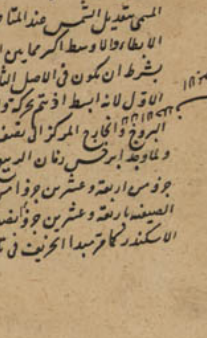 المسمى بتعديل الشمس عند المتا
الابطاء والاوسط اكبر مما بين ا
بشرط ان يكون فى الاصل الثا
الاول لانه ابسط اذ يتم بحركة و
البروج والخارج المركز الى نصف
ولما وجد ابرخس زمان الربيع
جزء من اربعة وعشرين جزءا من
الصيفية باربعة وعشرين جزءا نصف
الاسكندر كما مر مبدأ الخريف فى